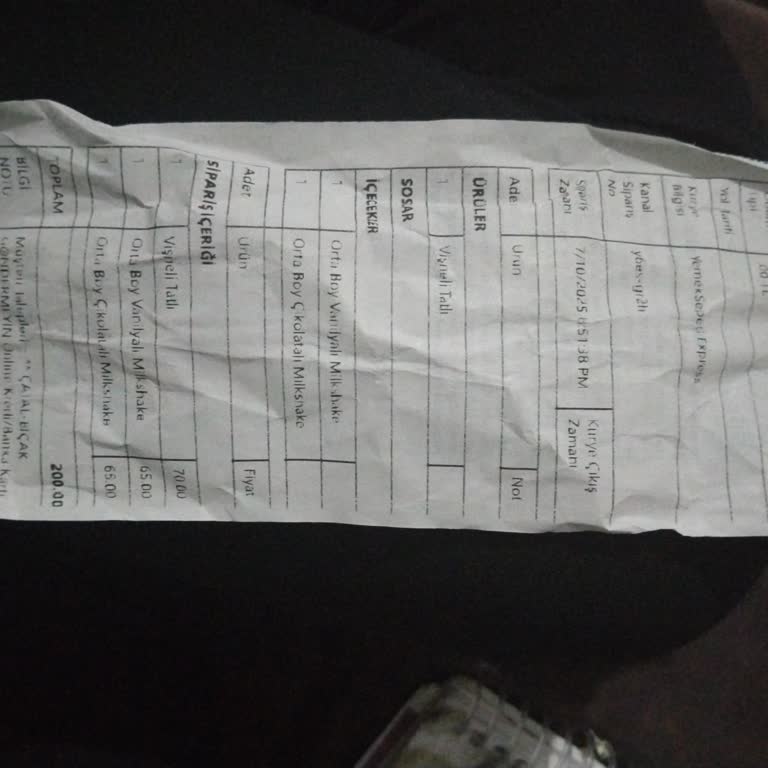 00 TL
Yol Tarifi
Kurye Bilgisi YemekSepeti Express
Kanal Sipariş No
Sipariş Zamanı 7/10/2025 8:51:38 PM Kurye Çıkış Zamanı
Ade Ürün Not
ÜRÜLER
1 Vişneli Tatlı
SOSAR
İÇECEKER
1 Orta Boy Vanilyalı Milkshake
1 Orta Boy Çikolatalı Milkshake
Adet Ürün Fiyat
SİPARİŞ İÇERİĞİ
1 Vişneli Tatlı 70.00
1 Orta Boy Vanilyalı Milkshake 65.00
1 Orta Boy Çikolatalı Milkshake 65.00
TOPLAM 200.00
BİLGİ Müşteri Talepleri ** ÇATAL-BIÇAK
NOTU GÖNDERMEYİN Online Kredi/Banka Kartı